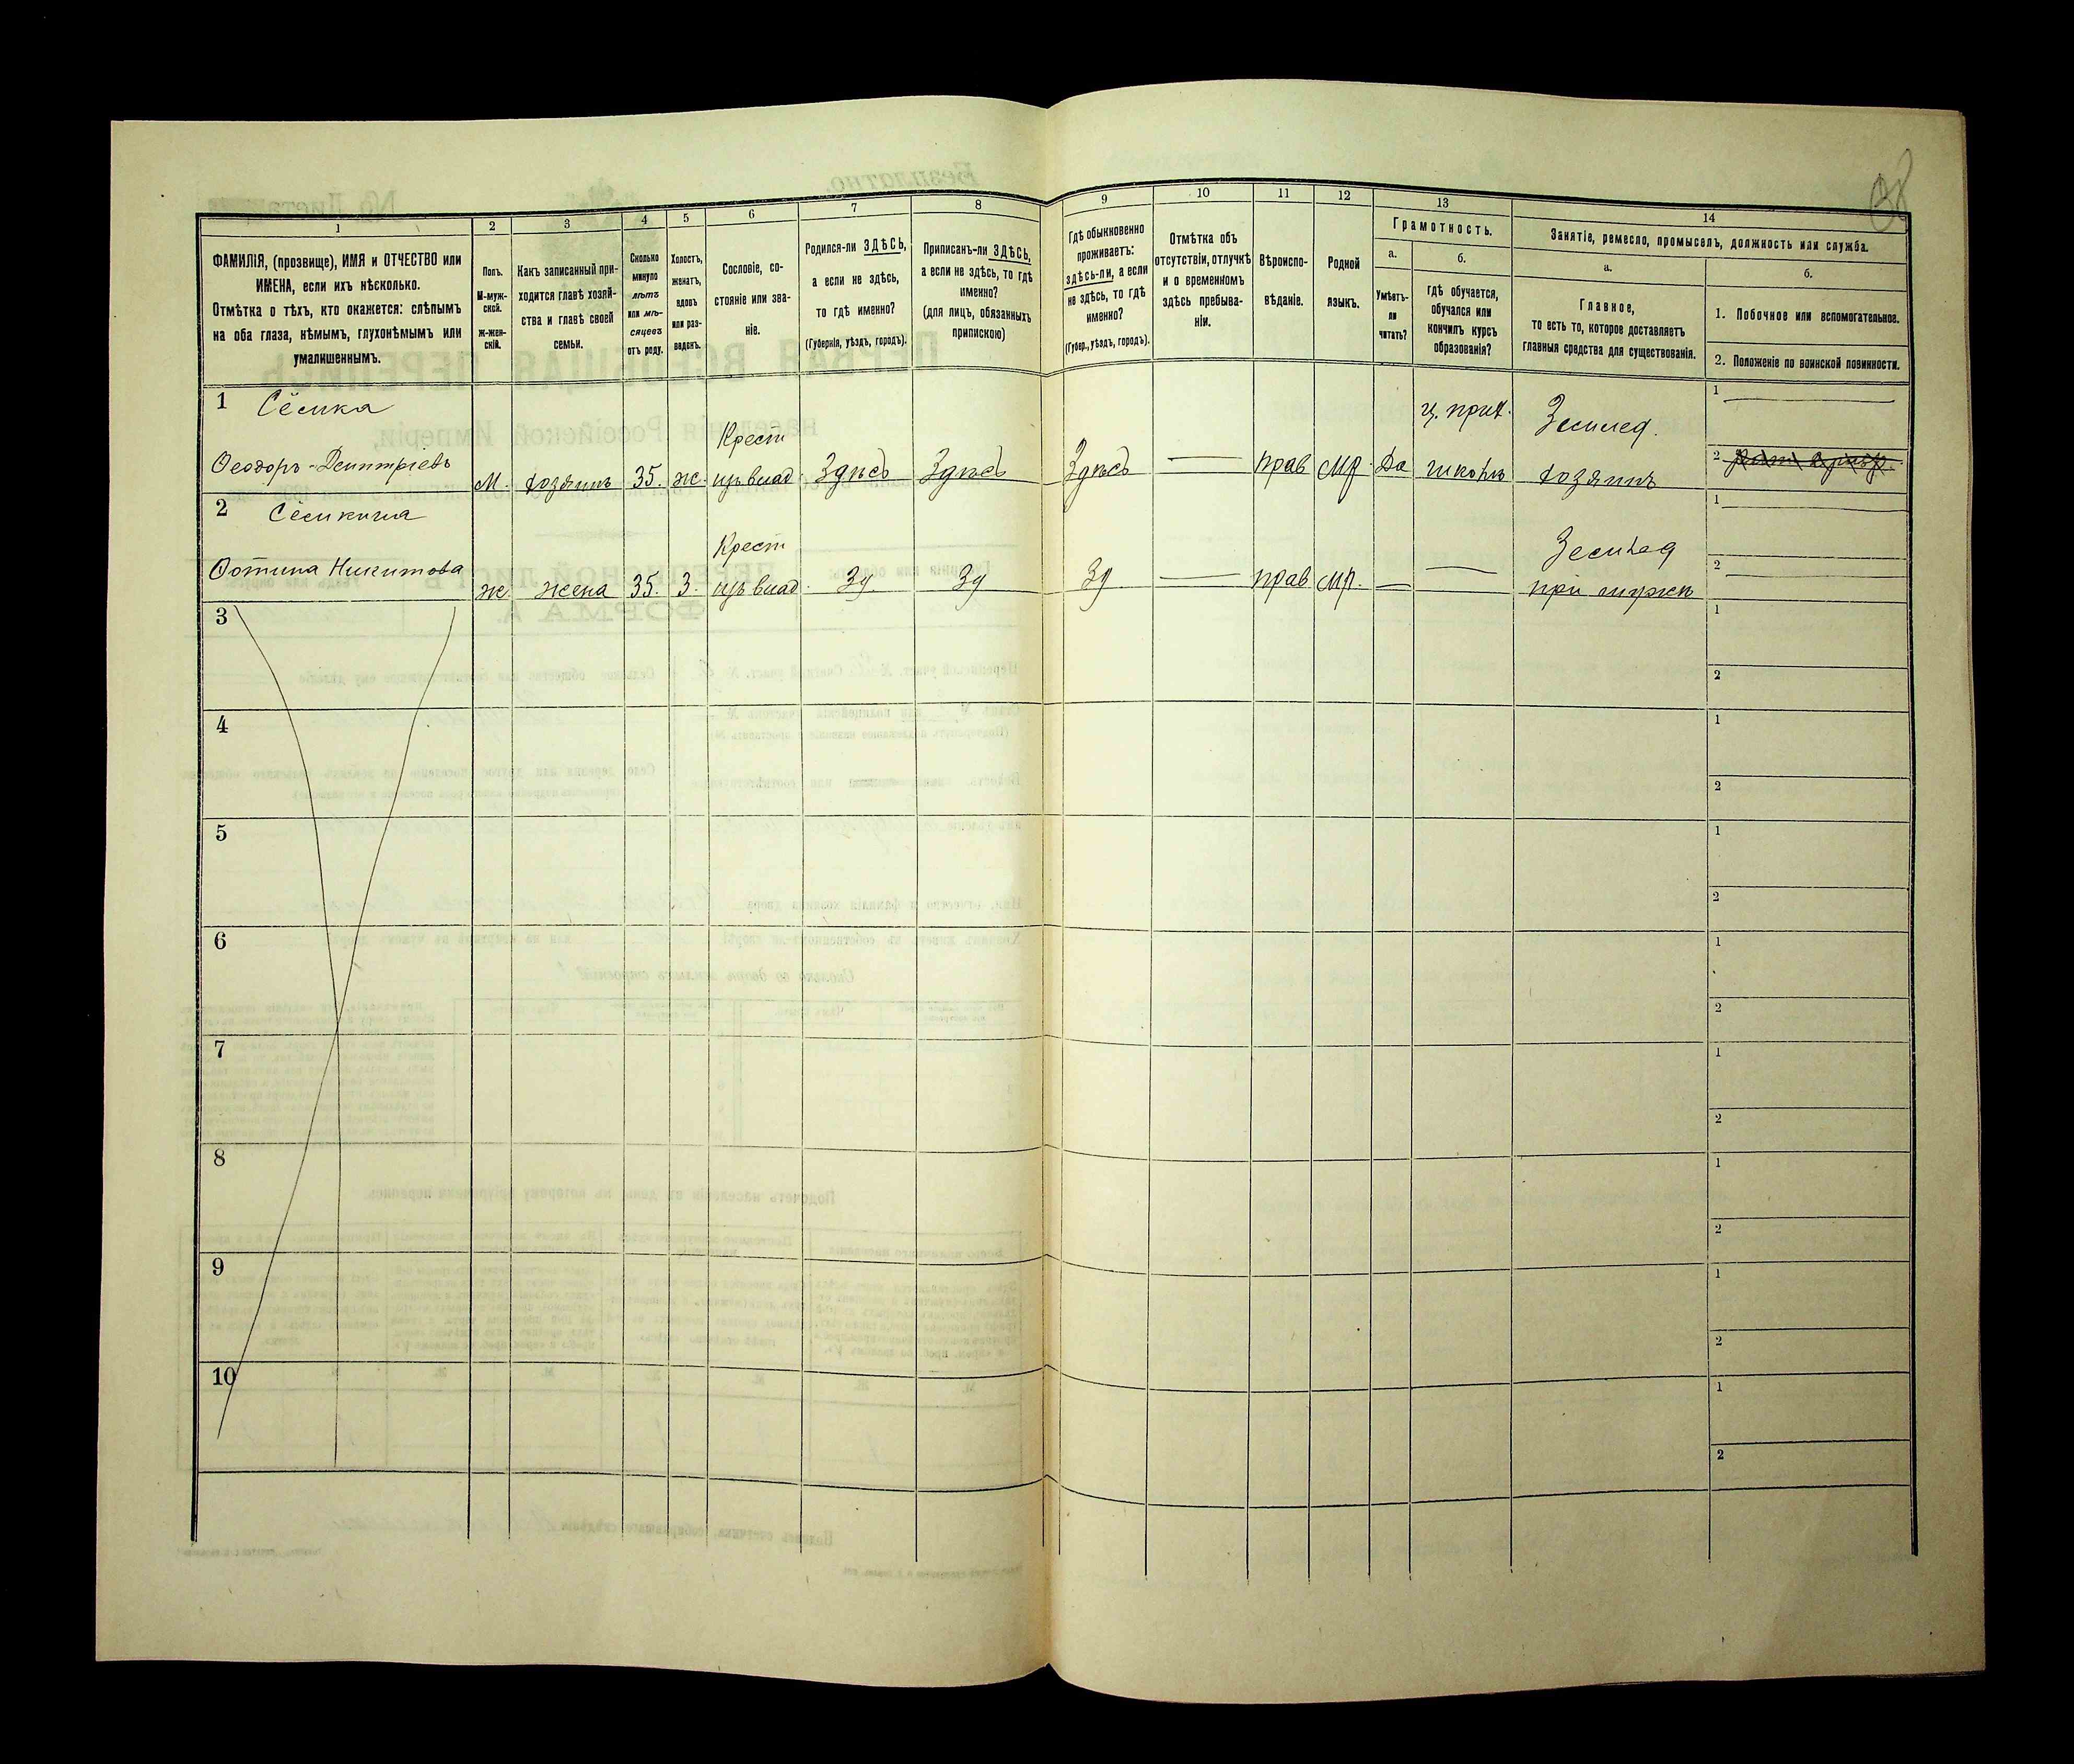 1
2
3
4
5
6
7
8
9
10
11
12
13
14
ФАМИЛІЯ, (прозвище), ИМЯ и ОТЧЕСТВО или
ИМЕНА, если ихъ нѣсколько.
Отмѣтка о тѣхъ, кто окажется: слѣпымъ
на оба глаза, нѣмымъ, глухонѣмымъ или
умалишеннымъ.
Полъ.
М-муж-
ской.
Ж-жен-
скій.
Какъ записанный при-
ходится главѣ хозяй-
ства и главѣ своей
семьи.
Сколько
минуло
лѣтъ
или мѣ-
сяцевъ
отъ роду.
Холостъ,
женатъ,
вдовъ
или раз-
веденъ.
Сословіе, со-
стояніе или зва-
ніе.
Родился-ли ЗДѢСЬ,
а если не здѣсь,
то гдѣ именно?
(Губернія, уѣздъ, городъ).
Приписанъ-ли ЗДѢСЬ,
а если не здѣсь, то гдѣ
именно?
(для лицъ, обязанныхъ
припискою)
Гдѣ обыкновенно
проживаетъ:
здѣсь-ли, а если
не здѣсь, то гдѣ
именно?
(Губер., уѣздъ, городъ).
Отмѣтка объ
отсутствіи, отлучкѣ
и о временномъ
здѣсь пребыва-
ніи.
Вѣроиспо-
вѣданіе.
Родной
языкъ.
Грамотность.
а.
Умѣетъ-
ли
читать?
б.
Гдѣ обучается,
обучался или
кончилъ курсъ
образованія?
Занятіе, ремесло, промыселъ, должность или служба.
а.
Главное,
то есть то, которое доставляетъ
главныя средства для существованія.
б.
1. Побочное или вспомогательное.
2. Положеніе по воинской повинности.
1 Сёмка
Ѳеодоръ Дмитріевъ
М. хозяинъ 35. ж. Крест
изъ влад. Здѣсь Здѣсь Здѣсь — прав мр. Да ц. прих.
школѣ Землед.
хозяинъ
1
2
2 Сёмкина
Фотина Никитова
ж. жена 35. З. Крест
изъ влад. Зд. Зд Зд — прав мр. — — Землед
при мужѣ
1
2
3
1
2
4
1
2
5
1
2
6
1
2
7
1
2
8
1
2
9
1
2
10
1
2